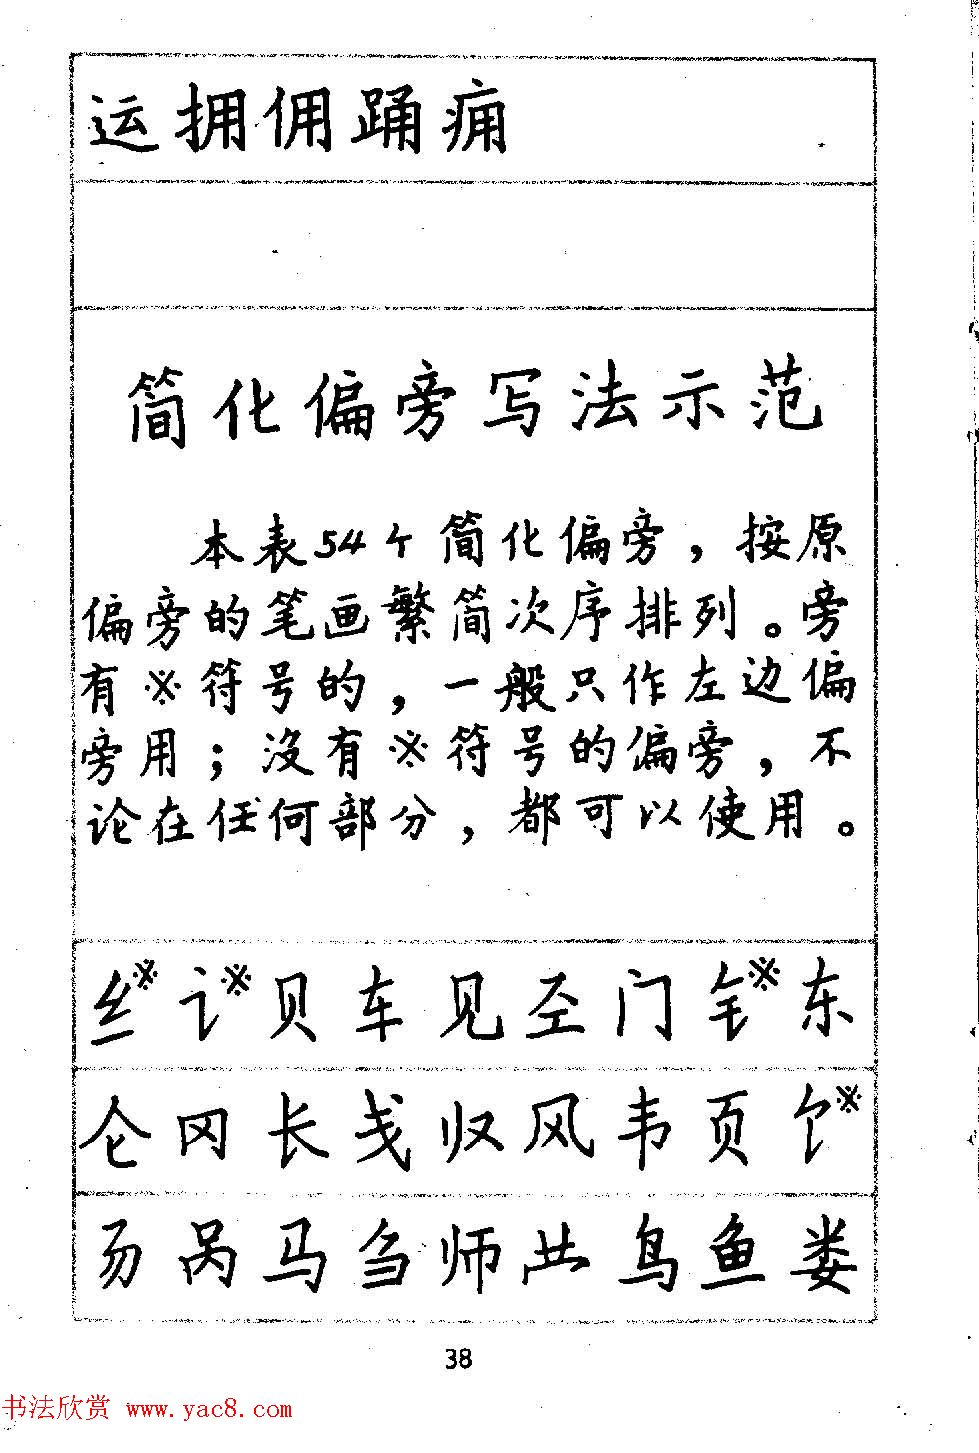 运拥佣踊痈
简化偏旁写法示范
本表54个简化偏旁，按原
偏旁的笔画繁简次序排列。旁
有※符号的，一般只作左边偏
旁用；没有※符号的偏旁，不
论在任何部分，都可以使用。
纟※ 讠※ 贝 车 见 圣 门 钅※ 东
仑 冈 长 戋 归 风 韦 页 饣※
呙 马 刍 师 鸟 鱼 娄
38
书法欣赏 www.yac8.com